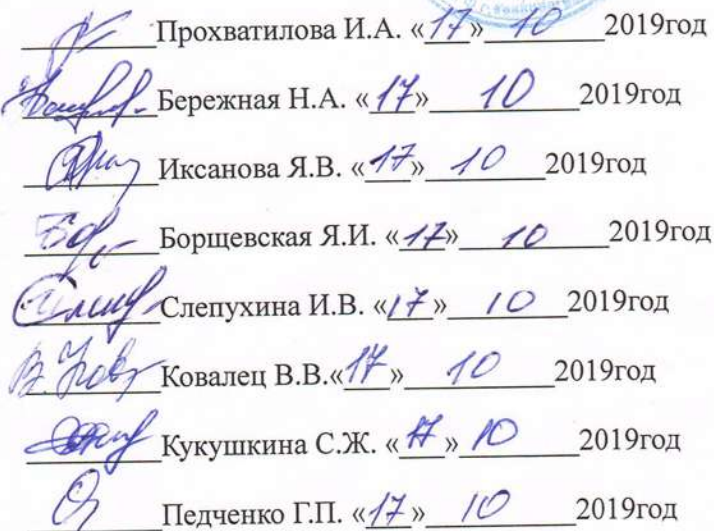 Прохватилова И.А. «17» 10 2019год
Бережная Н.А. «17» 10 2019год
Иксанова Я.В. «17» 10 2019год
Борщевская Я.И. «17» 10 2019год
Слепухина И.В. «17» 10 2019год
Ковалец В.В.«17» 10 2019год
Кукушкина С.Ж. «17» 10 2019год
Педченко Г.П. «17» 10 2019год